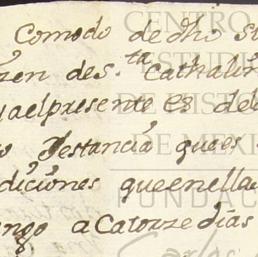 Comodo de dho su
zen de s.ta Cathalin
ya el presente es del
Jestancia ques
diciones queenella
ngo a Catorze dias
CENTRO
ESTUDI
DE HISTO
DE MEXI
FUNDAC
Carlos